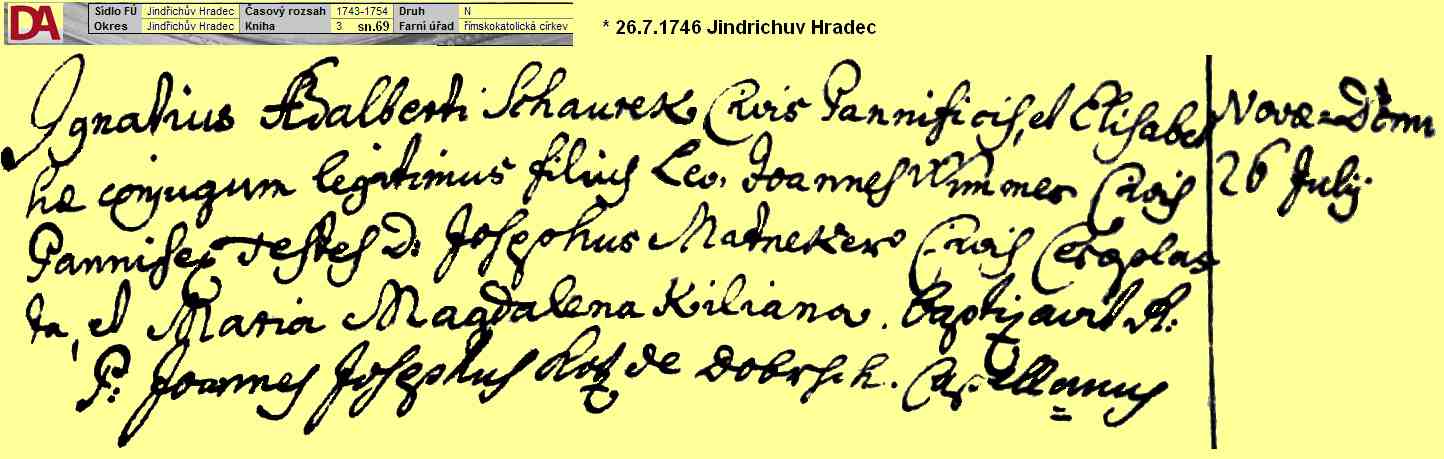 DA Sídlo FÚ Jindřichův Hradec Časový rozsah 1743-1754 Druh N
Okres Jindřichův Hradec Kniha 3 sn.69 Farní úřad římskokatolická církev
* 26.7.1746 Jindrichuv Hradec
Ignatius Adalberti Schaurek Civis Pannificis, et Elisabet
hæ conjugum legitimus filius Lev. Joannes Wimmer Civis
Pannifex Testes D: Josephus Civis
ta, et Maria Magdalena Kiliana. Baptizavit A:
P: Joannes Josephus de Dobrsch. Capellanus
Novæ-Domi
26 July